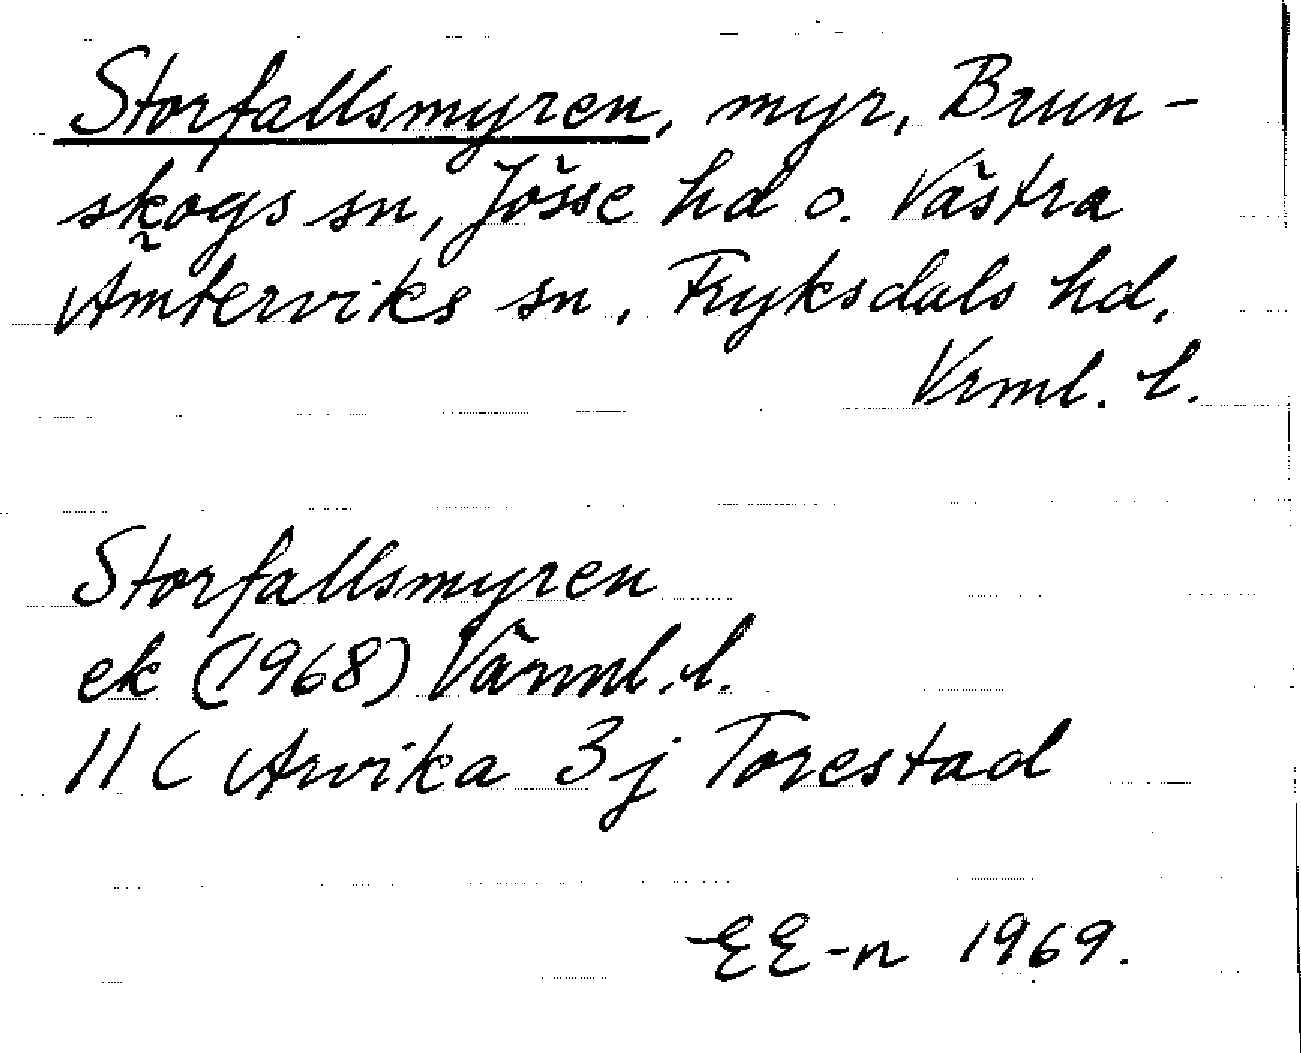 Storfallsmyren, myr, Brun-
skogs sn, Jösse hd o. Västra
Ämterviks sn, Fryksdals hd,
Vrml. l.
Storfallsmyren
ek (1968) Värml. l.
11 C Arvika 3j Torestad
EE-n 1969.